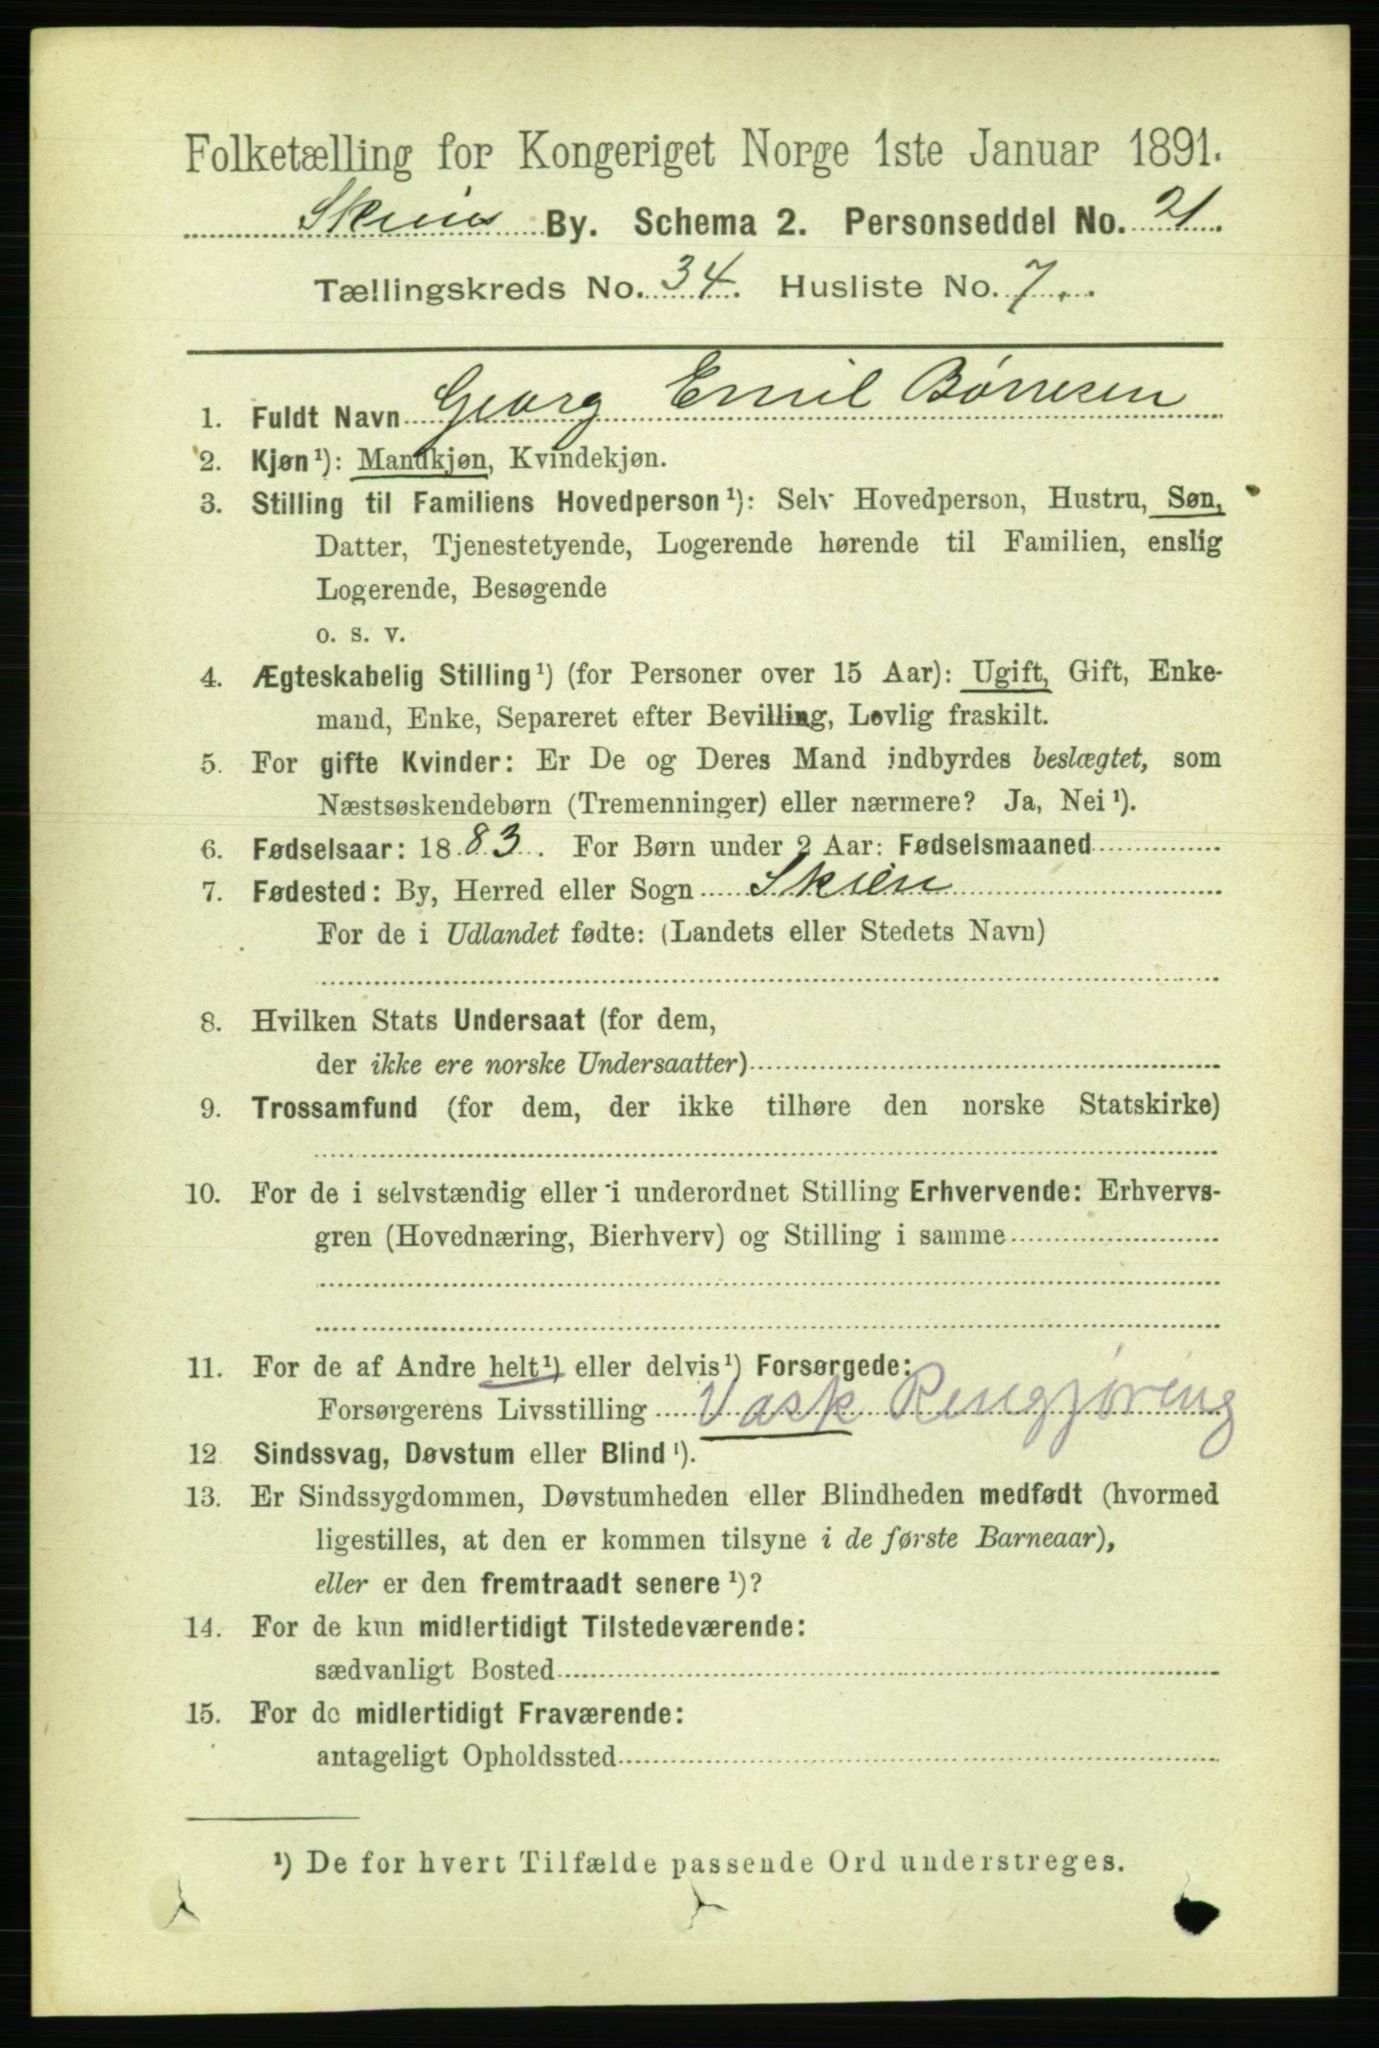 Folketælling for Kongeriget Norge 1ste Januar 1891.
Skiens By. Schema 2. Personseddel No. 21.
Tællingskreds No. 34. Husliste No. 7.
1. Fuldt Navn Georg Emil Börresen
2. Kjøn¹): Mandkjøn, Kvindekjøn.
3. Stilling til Familiens Hovedperson¹): Selv Hovedperson, Hustru, Søn,
Datter, Tjenestetyende, Logerende hørende til Familien, enslig
Logerende, Besøgende
o. s. v.
4. Ægteskabelig Stilling¹) (for Personer over 15 Aar): Ugift, Gift, Enke-
mand, Enke, Separeret efter Bevilling, Lovlig fraskilt.
5. For gifte Kvinder: Er De og Deres Mand indbyrdes beslægtet, som
Næstsøskendebørn (Tremenninger) eller nærmere? Ja, Nei¹).
6. Fødselsaar: 1883. For Børn under 2 Aar: Fødselsmaaned
7. Fødested: By, Herred eller Sogn Skien
For de i Udlandet fødte: (Landets eller Stedets Navn)
8. Hvilken Stats Undersaat (for dem,
der ikke ere norske Undersaatter)
9. Trossamfund (for dem, der ikke tilhøre den norske Statskirke)
10. For de i selvstændig eller i underordnet Stilling Erhvervende: Erhvervs-
gren (Hovednæring, Bierhverv) og Stilling i samme
11. For de af Andre helt¹) eller delvis¹) Forsørgede:
Forsørgerens Livsstilling Vask Rengjøring
12. Sindssvag, Døvstum eller Blind¹).
13. Er Sindssygdommen, Døvstumheden eller Blindheden medfødt (hvormed
ligestilles, at den er kommen tilsyne i de første Barneaar),
eller er den fremtraadt senere¹)?
14. For de kun midlertidigt Tilstedeværende:
sædvanligt Bosted
15. For de midlertidigt Fraværende:
antageligt Opholdssted
¹) De for hvert Tilfælde passende Ord understreges.